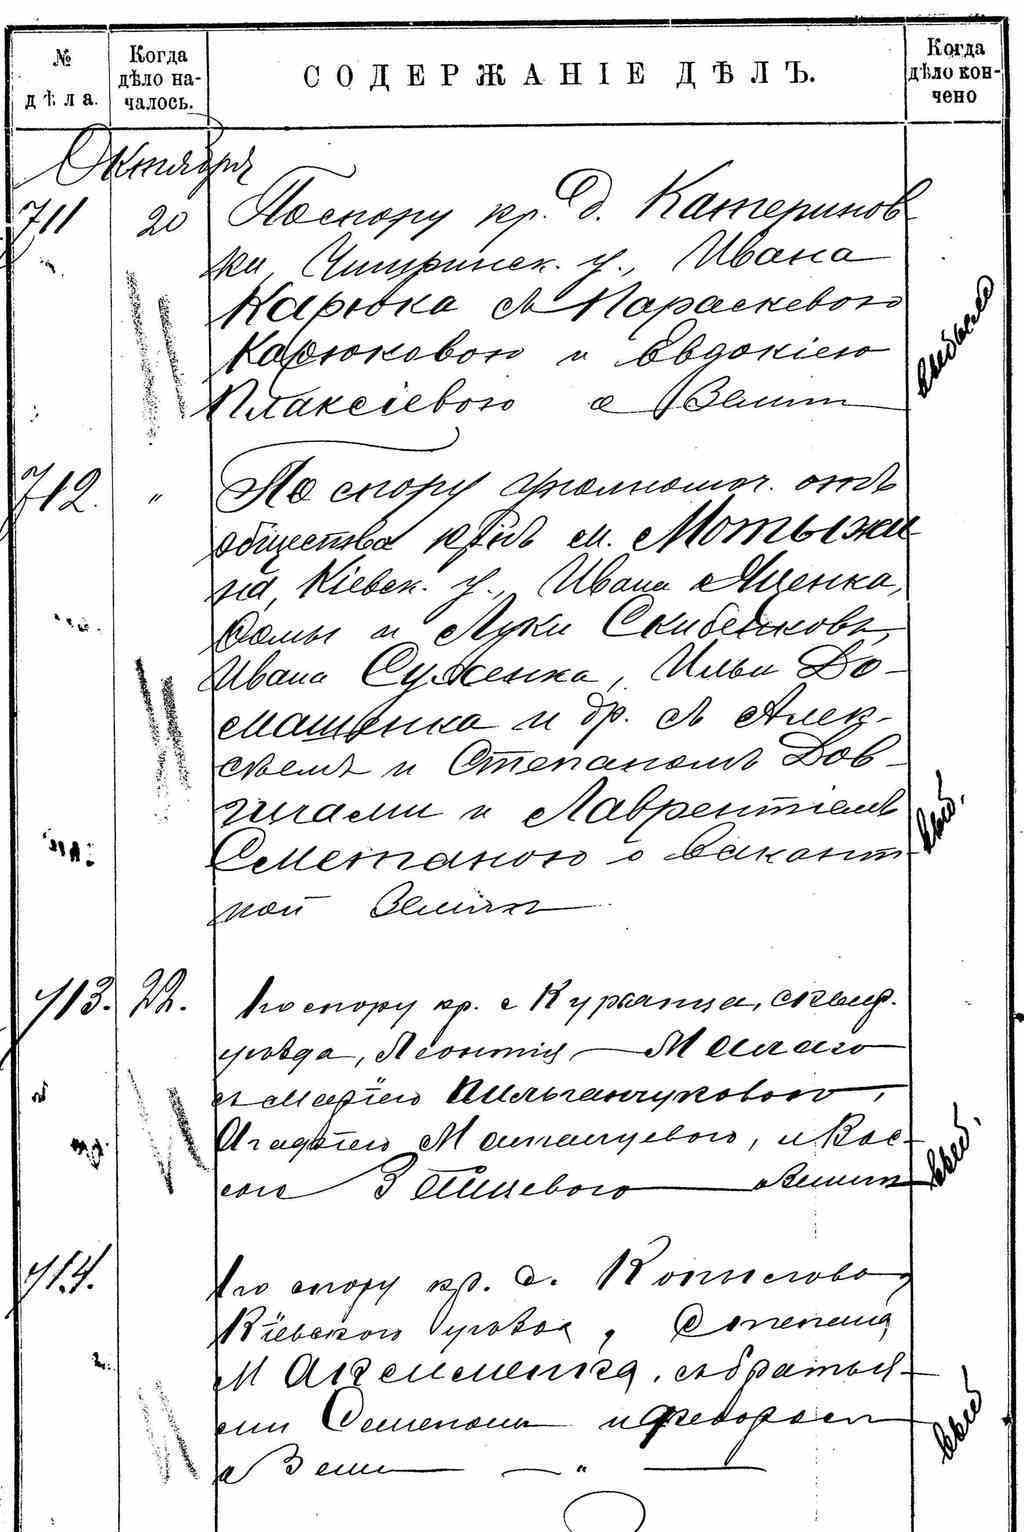 № дѣла.
Когда дѣло на-
чалось.
СОДЕРЖАНІЕ ДѢЛЪ.
Когда дѣло кон-
чено
Октября
711 20 По спору кр. д. Катеринов-
ки, Чигринск. у., Ивана
Карюка съ Параскевою
Карюковою и Евдокіею
Плаксіевою о Земли
выбыло
712. " По спору уполномоч. отъ
общества кр-нъ м. Мотыжи-
на, Кіевск. у., Ивана Яценка,
Ѳомы и Луки Скибенковъ,
Ивана Суженка, Ильи До-
машенка и др. съ Алек-
сѣемъ и Степаномъ Дов-
гичами и Лаврентіемъ
Сметаною о вакант-
ной Земли
выб.
713. 22. По спору кр. с Курьянца, сквир.
уѣзда, Леонтія Малаго
съ Маріею
Агафіею и Вас-
сою Зайцевою о Земли
выб.
714. По спору кр. д. Копылова,
Кіевского уѣзда, Степана
Максименка, съ братья-
ми Семеномъ и Федоромъ
о Земли — " —
выб